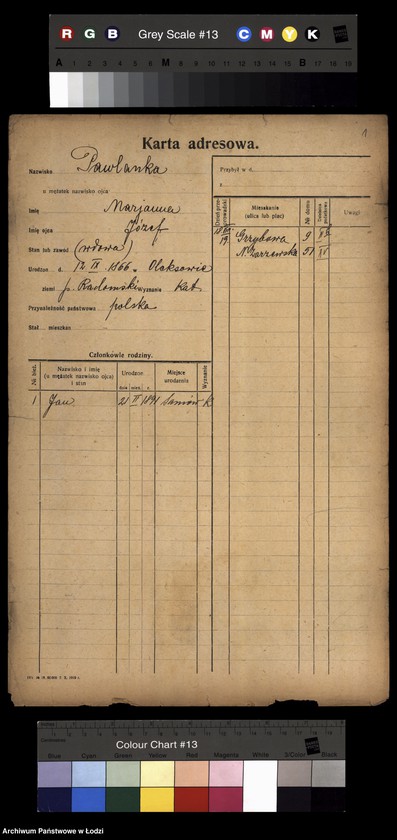 R G B Grey Scale #13 C M Y K
A 1 2 3 4 5 6 M 8 9 10 11 12 13 14 15 B 17 18 19
1
Karta adresowa.
Nazwisko Pawlanka
u mężatek nazwisko ojca
Imię Marjanna
Imię ojca Józef
Stan lub zawód (wdowa)
Urodzon d. 12 IX 1866 w Olaksowie
ziemi p. Radomski wyznania kat
Przynależność państwowa polska
Stał. mieszkan.
Przybył w d.
z
Dzień przeprowadzki Mieszkanie (ulica lub plac) № domu Uwagi
Grzybowa 9
N. Zarzewska 51 IV
Członkowie rodziny.
Nazwisko i imię (u mężatek nazwisko ojca) i stan Urodzon dnia mies. r. Miejsce urodzenia Wyznanie
1 Jan 21 II 1891 k
Colour Chart #13
Blue Cyan Green Yellow Red Magenta White 3/Color Black
Archiwum Państwowe w Łodzi